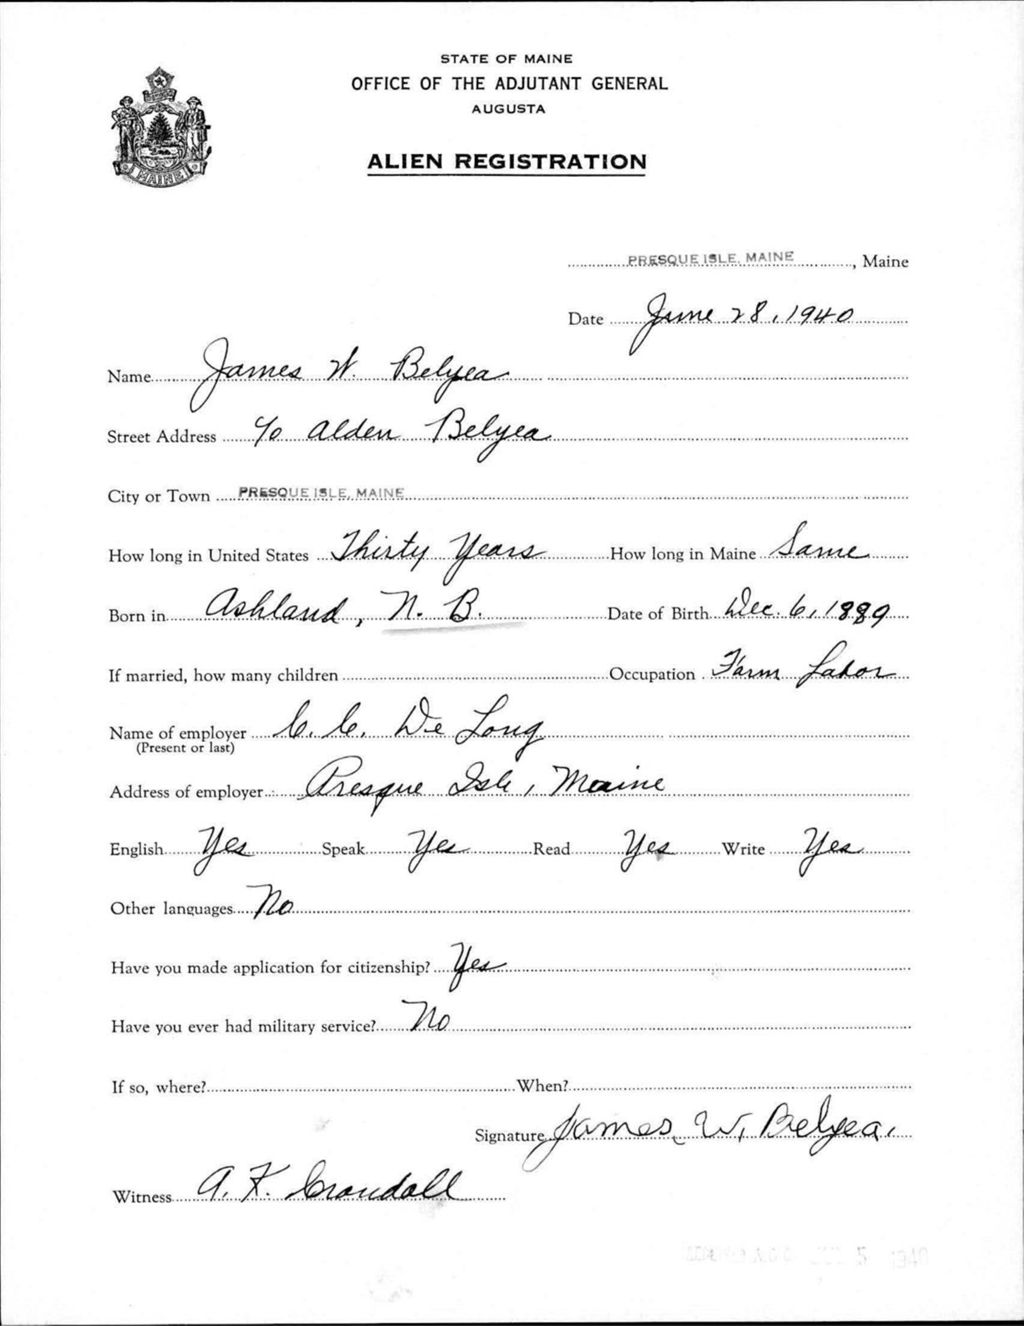 STATE OF MAINE
OFFICE OF THE ADJUTANT GENERAL
AUGUSTA
MAINE
ALIEN REGISTRATION
PRESQUE ISLE, MAINE, Maine
Date June 28, 1940
Name James W. Belyea
Street Address c/o Alden Belyea
City or Town PRESQUE ISLE, MAINE
How long in United States Thirty Years How long in Maine Same
Born in Ashland, N. B. Date of Birth Dec. 6, 1889
If married, how many children Occupation Farm Labor
Name of employer C. C. De Long
(Present or last)
Address of employer Presque Isle, Maine
English Yes Speak Yes Read Yes Write Yes
Other languages No
Have you made application for citizenship? Yes
Have you ever had military service? No
If so, where? When?
Signature James W. Belyea.
Witness A. F. Crandall
5 1940